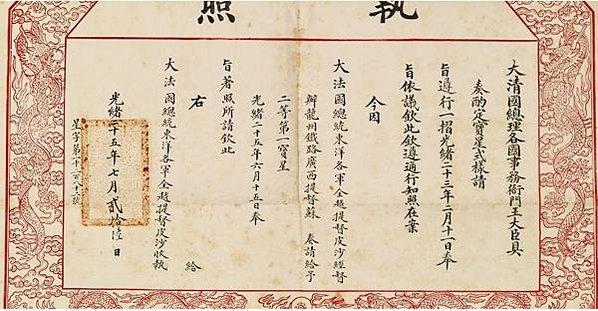 執照
大清國總理各國事務衙門王大臣具
奏酌定寶星式樣請
旨遵行一摺光緒二十三年二月十一日奉
旨依議欽此欽遵通行知照在案
今因
大法國總統東洋各軍全越提督皮沙經督
辦龍州鐵路廣西提督蘇 奏請給予
二等第一寶星
光緒二十五年六月十五日奉
旨著照所請欽此
右 給
大法國總統東洋各軍全越提督皮沙收執
光緒二十五年七月貳拾陸日
星字第 號